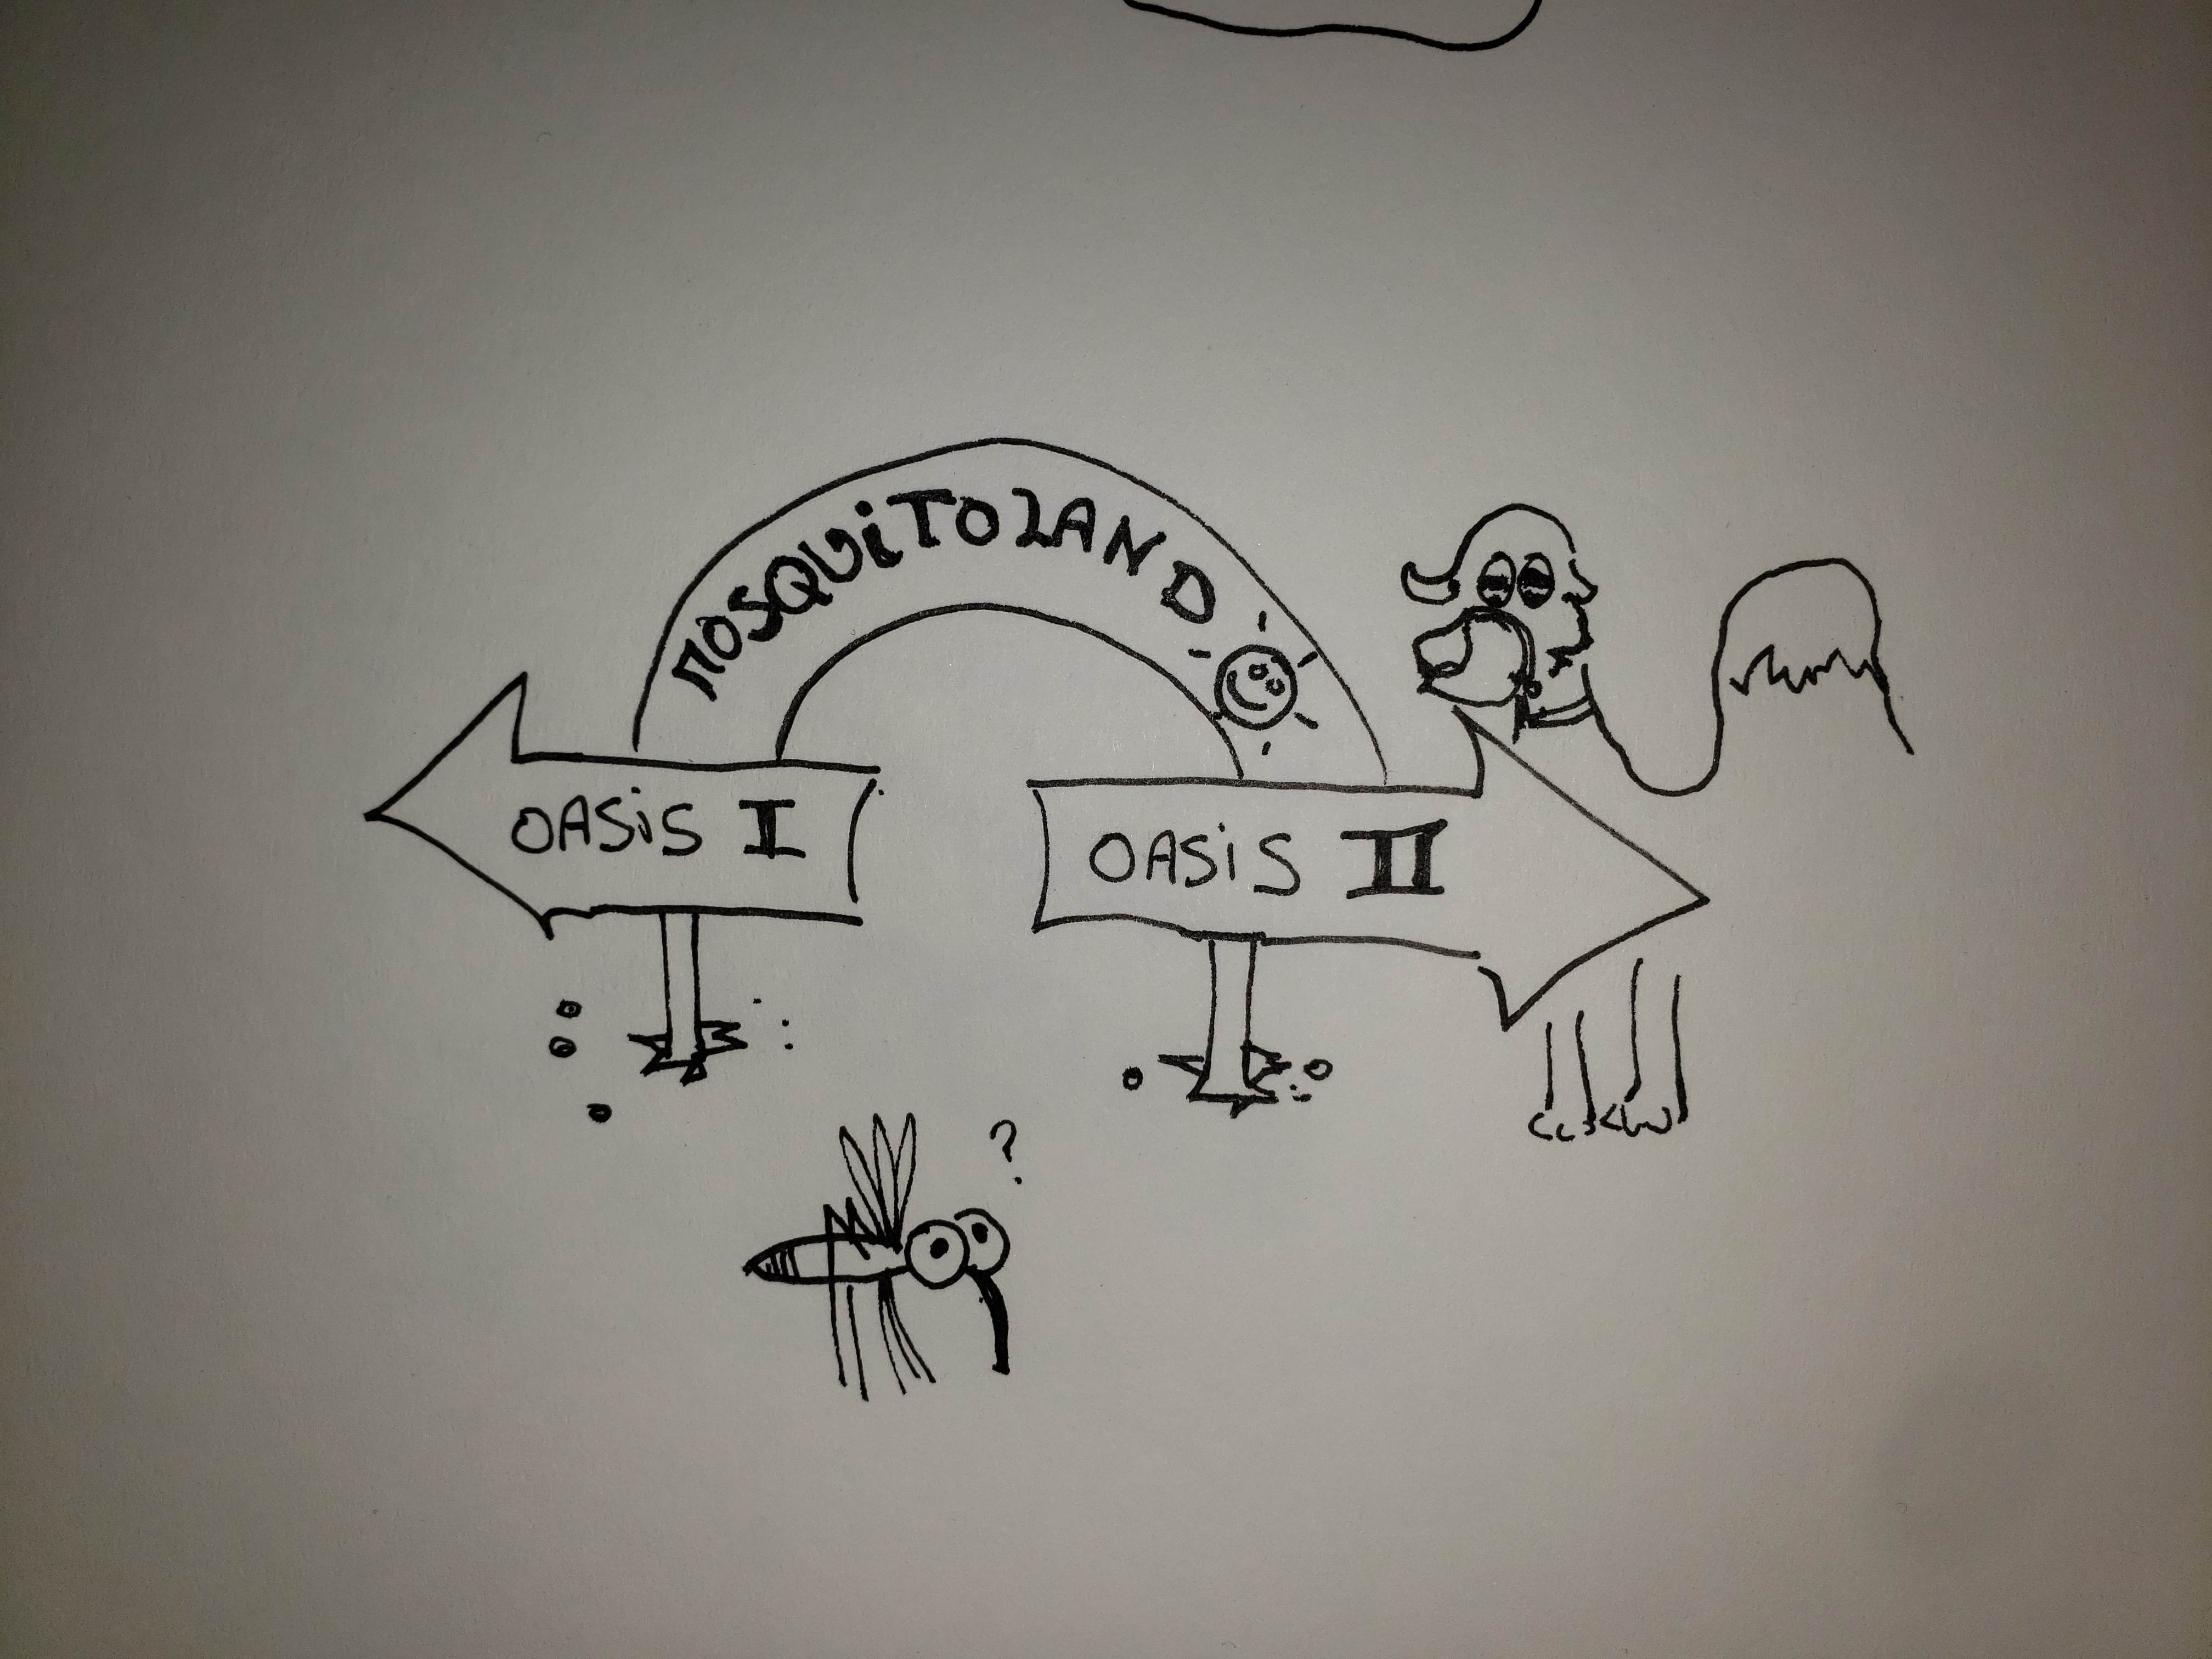 MOSQUiTOLAND
OASiS I
OASiS II
?